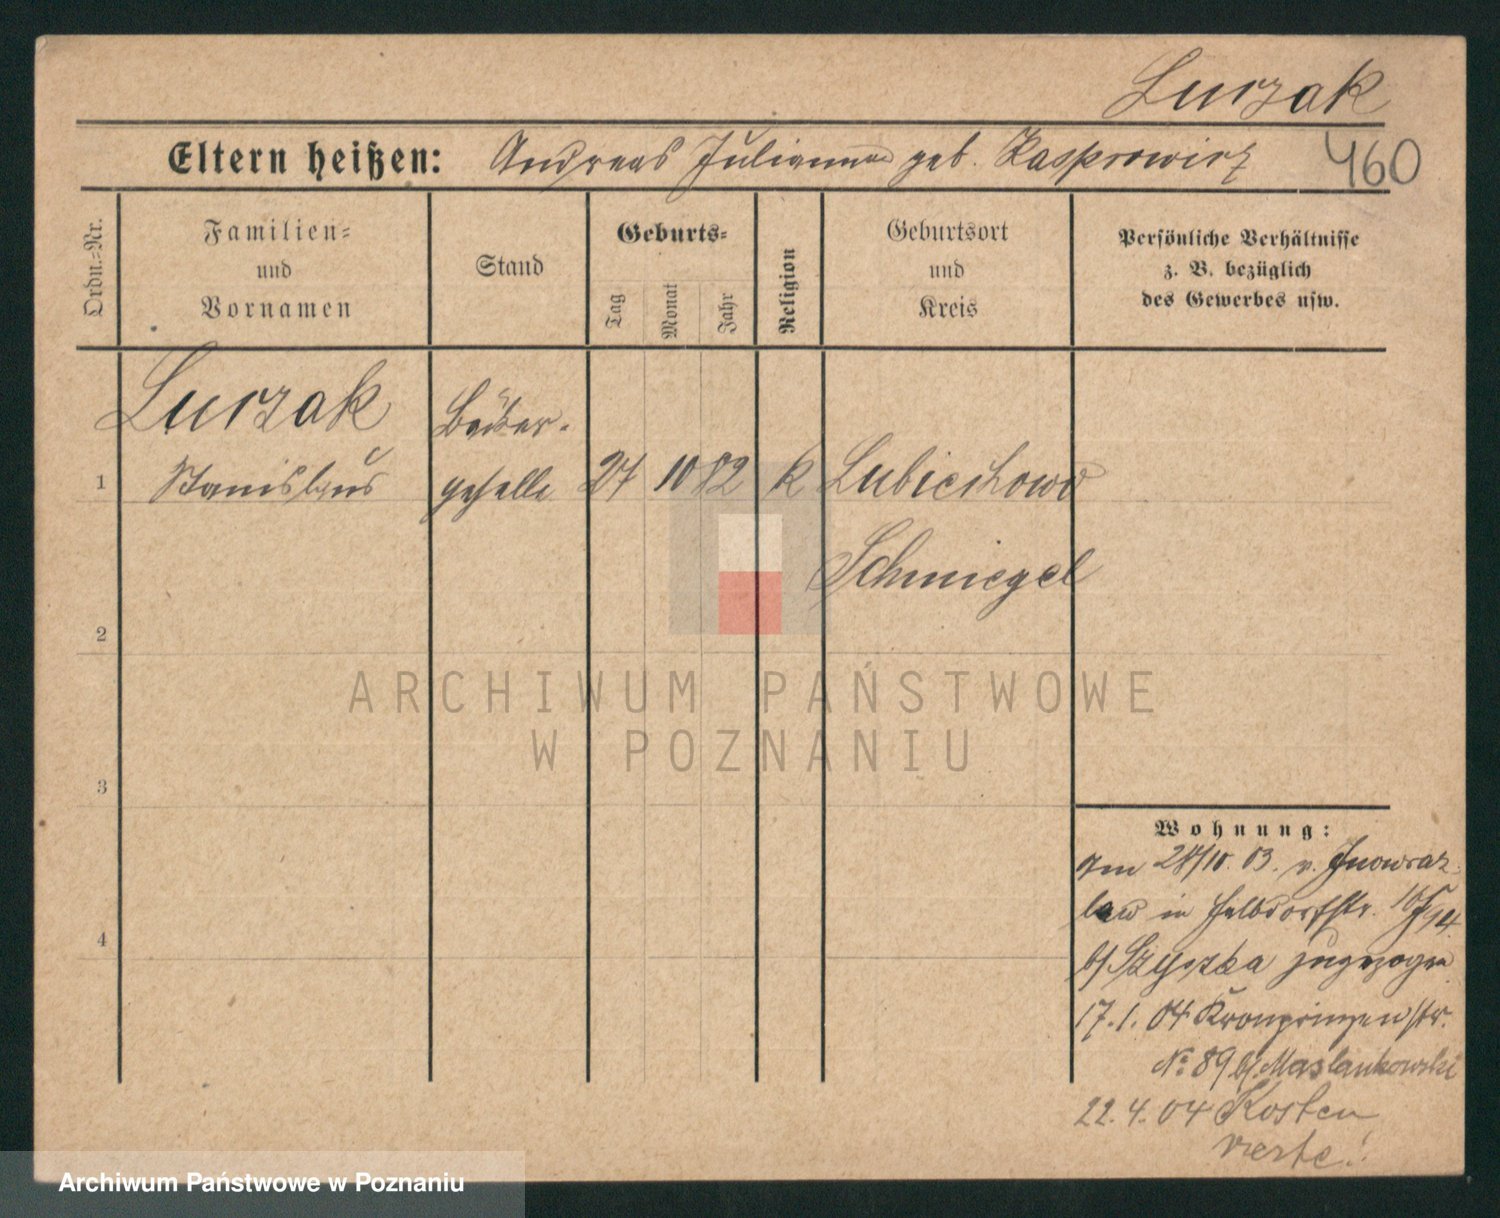 Lurzak
Eltern heißen: Andreas Julianna geb. Kasprowicz 460
Ordn.-Nr.
Familien-
und
Vornamen
Stand
Geburts-
Tag
Monat
Jahr
Religion
Geburtsort
und
Kreis
Persönliche Verhältnisse
z. B. bezüglich
des Gewerbes usw.
Lurzak
Bäcker-
1 Stanislaus geselle 27 10 82 k Lubiechowo
Schmiegel
2
ARCHIWUM PAŃSTWOWE
W POZNANIU
3
Wohnung:
am 28/10. 03. v. Inowraz-
law in
4
bei zugezogen
17. 1. 04 Kronprinzenstr.
No 89 b/ Maslankowski
22. 4. 04 Kosten
Archiwum Państwowe w Poznaniu